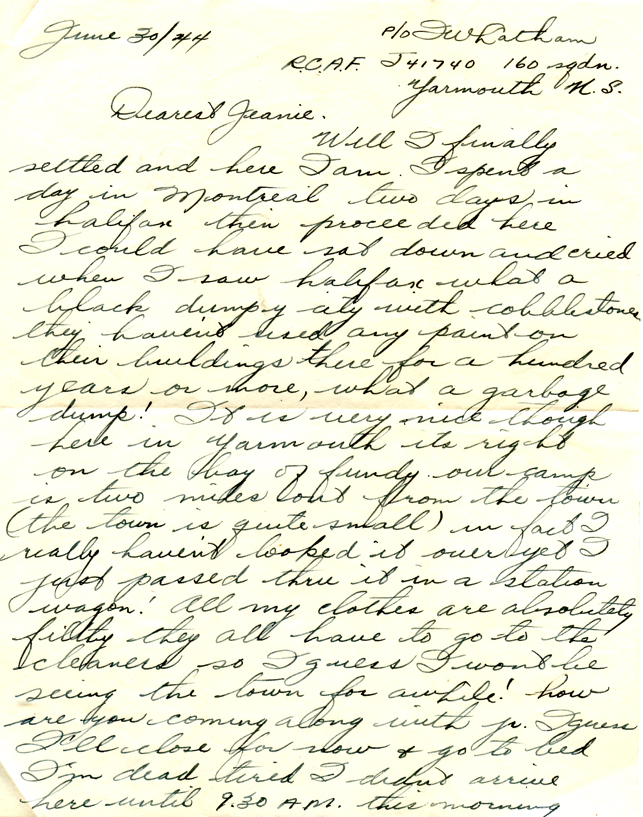 June 30/44
P/O I W Latham
R.C.A.F. J41740 160 sqdn.
Yarmouth N.S.
Dearest Jeanie.
Well I finally
settled and here I am. I spent a
day in Montreal two days in
halifax then proceeded here
I could have sat down and cried
when I saw halifax what a
black dumpy city with cobblestones
they haven't used any paint on
their buildings there for a hundred
years or more, what a garbage
dump! It is very nice though
here in Yarmouth its right
on the bay of fundy. our camp
is two miles out from the town
(the town is quite small) in fact I
really haven't looked it over yet I
just passed thru it in a station
wagon! All my clothes are absolutely
filthy they all have to go to the
cleaners so I guess I won't be
seeing the town for awhile! how
are you coming along with jr. I guess
I'll close for now & go to bed
I'm dead tired I didn't arrive
here until 9.30 A.M. this morning